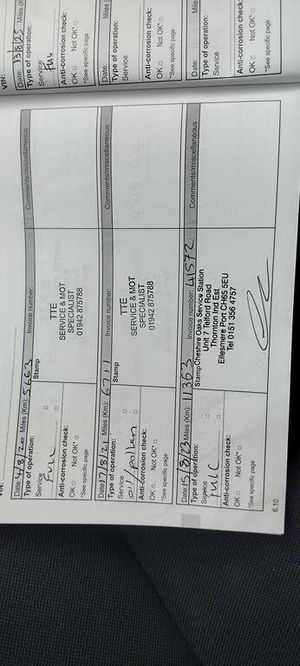 VIN:
Date: 13/8/25 Miles (K
Type of operation:
Service
Full
Anti-corrosion check:
OK □ Not OK* □
*See specific page
Date: Miles (
Type of operation:
Service
Anti-corrosion check:
OK □ Not OK* □
*See specific page
Date: Mile
Type of operation:
Service
Anti-corrosion check:
OK □ Not OK* □
*See specific page
VIN:
Date: 4/8/20 Miles (Km): 5663 Invoice number: Comments/miscellaneous
Type of operation: Stamp
Service □
Full □
TTE
SERVICE & MOT
SPECIALIST
01942 875788
Anti-corrosion check:
OK □ Not OK* □
*See specific page
Date: 17/8/21 Miles (Km): 6711 Invoice number: Comments/miscellaneous
Type of operation: Stamp
Service □
oil/pollen □
TTE
SERVICE & MOT
SPECIALIST
01942 875788
Anti-corrosion check:
OK □ Not OK* □
*See specific page
Date: 15/8/23 Miles (Km): 11363 Invoice number: 41572 Comments/miscellaneous
Type of operation: Stamp
Service □
Full □
Cheshire Oaks Service Station
Unit 7 Telford Road
Thornton Ind Est
Ellesmere Port CH65 5EU
Tel 0151 356 4757
Anti-corrosion check:
OK □ Not OK* □
*See specific page
6.10